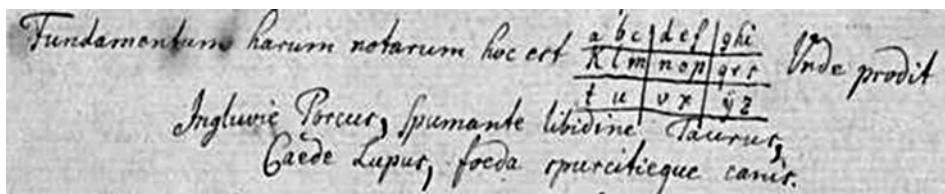 Fundamentum harum notarum hoc est a b c | d e f | g h i Unde prodit
K l m | n o p | q r s
t u | v x | ÿ z
Ingluvie Porcus, spumante libidine Taurus,
Caede Lupus, foeda spurcitieque canis.